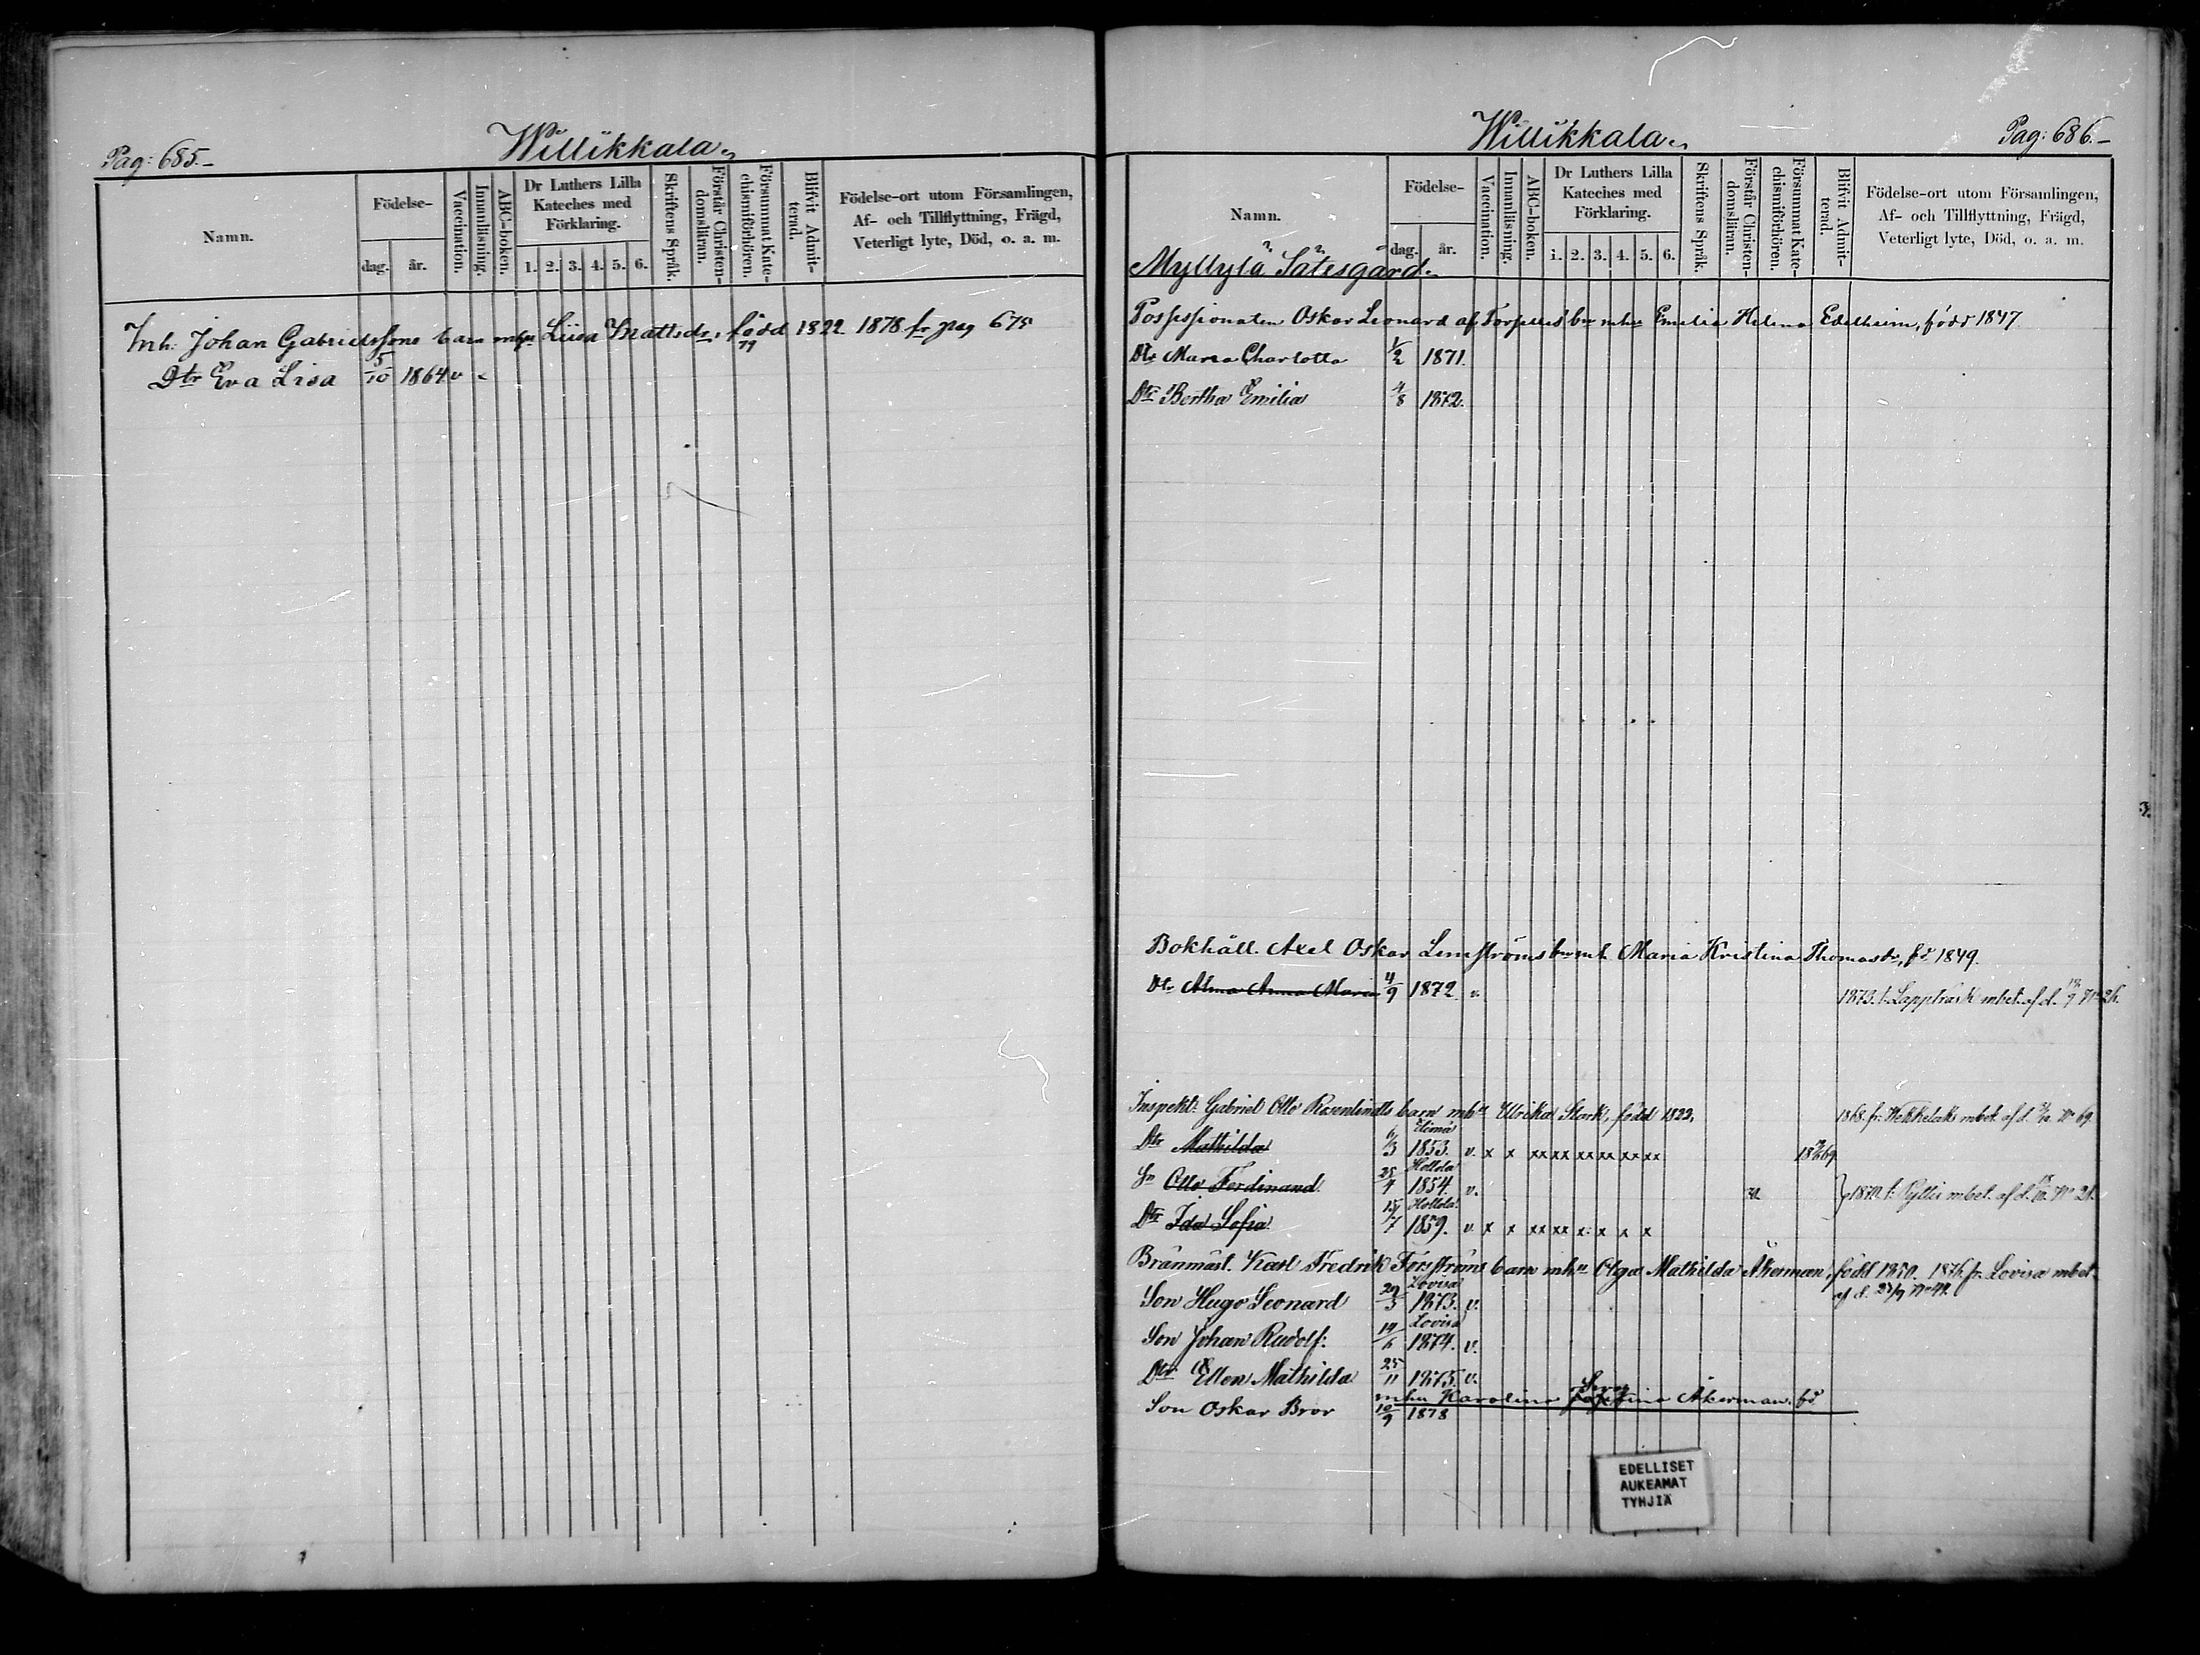 Pag: 685.
Willikkala.
Namn.
Födelse-
dag. år.
Vaccination.
Innanläsning.
ABC-boken.
Dr Luthers Lilla
Kateches med
Förklaring.
1. 2. 3. 4. 5. 6.
Skriftens Språk.
Förstår Christen-
domsläran.
Försummat Kate-
chismiförhören.
Blifvit Admit-
terad.
Födelse-ort utom Församlingen,
Af- och Tillflyttning, Frägd,
Veterligt lyte, Död, o. a. m.
Inh. Johan Gabrielssons barn mhu Liisa Mattsdr, född 1822 1878 fr pag 675
Dtr Eva Lisa 5/10 1864 v
Pag: 686.
Willikkala.
Namn.
Födelse-
dag. år.
Vaccination.
Innanläsning.
ABC-boken.
Dr Luthers Lilla
Kateches med
Förklaring.
1. 2. 3. 4. 5. 6.
Skriftens Språk.
Förstår Christen-
domsläran.
Försummat Kate-
chismiförhören.
Blifvit Admit-
terad.
Födelse-ort utom Församlingen,
Af- och Tillflyttning, Frägd,
Veterligt lyte, Död, o. a. m.
Myllylä Sätesgård.
Possessionaten Oskar Leonard af Forselles bn mhu Emelia Helena Edelheim, född 1847
Dtr Maria Charlotta 1/2 1871.
Dtr Bertha Emilia 4/8 1872.
Bokhåll. Axel Oskar Lenströms bn mh. Maria Kristina Thomasdr, fd 1849.
Dtr Alma Anna Maria 4/9 1872 v. 1873. t. Lappträsk mbet. af d.
Inspekt. Gabriel Otto Rosenlindts barn mhu Ulrika Stark, född 1822, 1868. fr. mbet af d. No 69.
Elimä
Dtr Mathilda 6/3 1853. v. x x xx xx xx xx xx xx 69
Hollola
Sn Otto Ferdinand. 25/4 1854. v. 1870. t. Pyttis mbet. af d. No 28.
Hollola
Dtr Ida Sofia 1859. v. x x xx xx x x x x
Bränmäst. Karl Fredrik Forsströms barn mhu Olga Mathilda Åkerman, född 1850. 1876 fr. Lovisa mbet.
af d.
Lovisa
Son Hugo Leonard 29/3 1873. v.
Lovisa
Son Johan Rudolf: 19/6 1874. v.
Dtr Ellen Mathilda 25/11 1875. v.
mhu Karolina Åkerman. fd
Son Oskar Bror 10/9 1878
EDELLISET
AUKEAMAT
TYHJIÄ